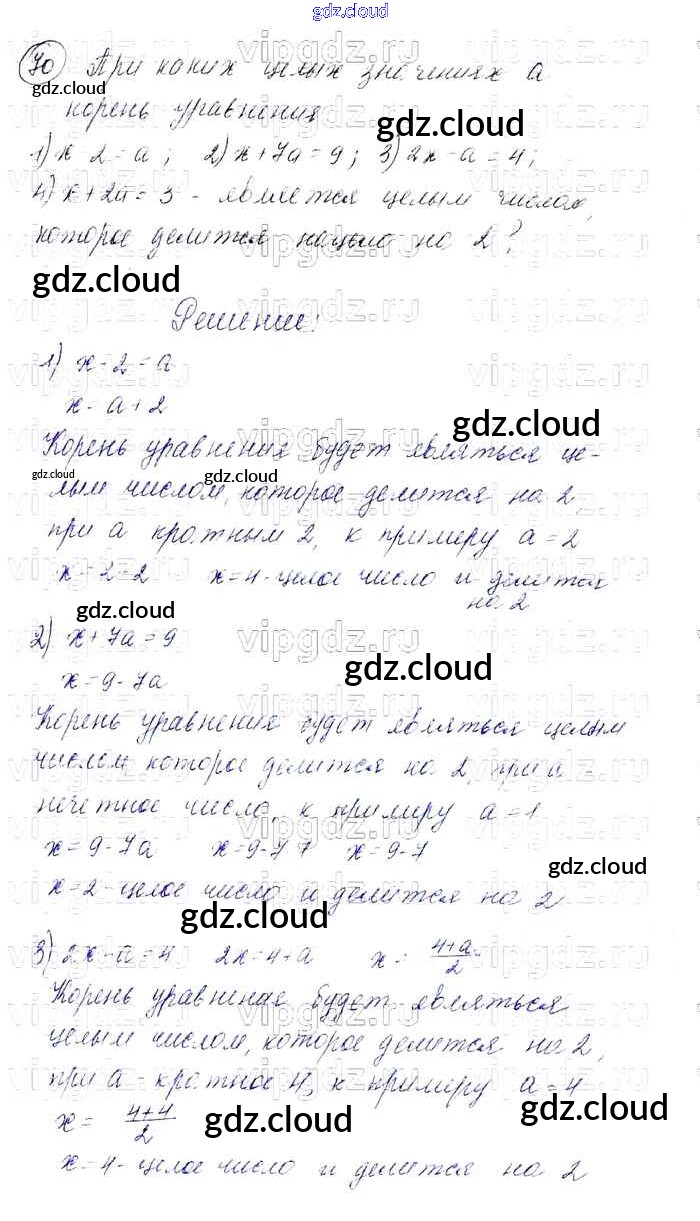 gdz.cloud
70 При каких целых значениях а
gdz.cloud
корень уравнения
gdz.cloud
1) x 2 = a; 2) x + 7a = 9; 3) 2x - a = 4;
4) x + 2a = 3 - является целым числом,
которое делится нацело на 2?
gdz.cloud
Решение:
1) x - 2 = a
x - a + 2
gdz.cloud
Корень уравнения будет являться це-
gdz.cloud gdz.cloud
лым числом, которое делится на 2,
при а кратным 2, к примеру a = 2
x - 2 = 2 x = 4 - целое число и делится
на 2
gdz.cloud
2) x + 7a = 9
gdz.cloud
x = 9 - 7a
Корень уравнения будет являться целым
числом которое делится на 2, при а -
нечетное число, к примеру a = 1
x = 9 - 7a x = 9 - 7 1 x = 9 - 7
gdz.cloud
x = 2 - целое число и делится на 2
gdz.cloud
3) 2x - a = 4 2x = 4 + a x = (4+a)/2
Корень уравнения будет являться
целым числом, которое делится на 2,
при а - кратное 4, к примеру a = 4
gdz.cloud gdz.cloud
x = (4+4)/2
x = 4 - целое число и делится на 2